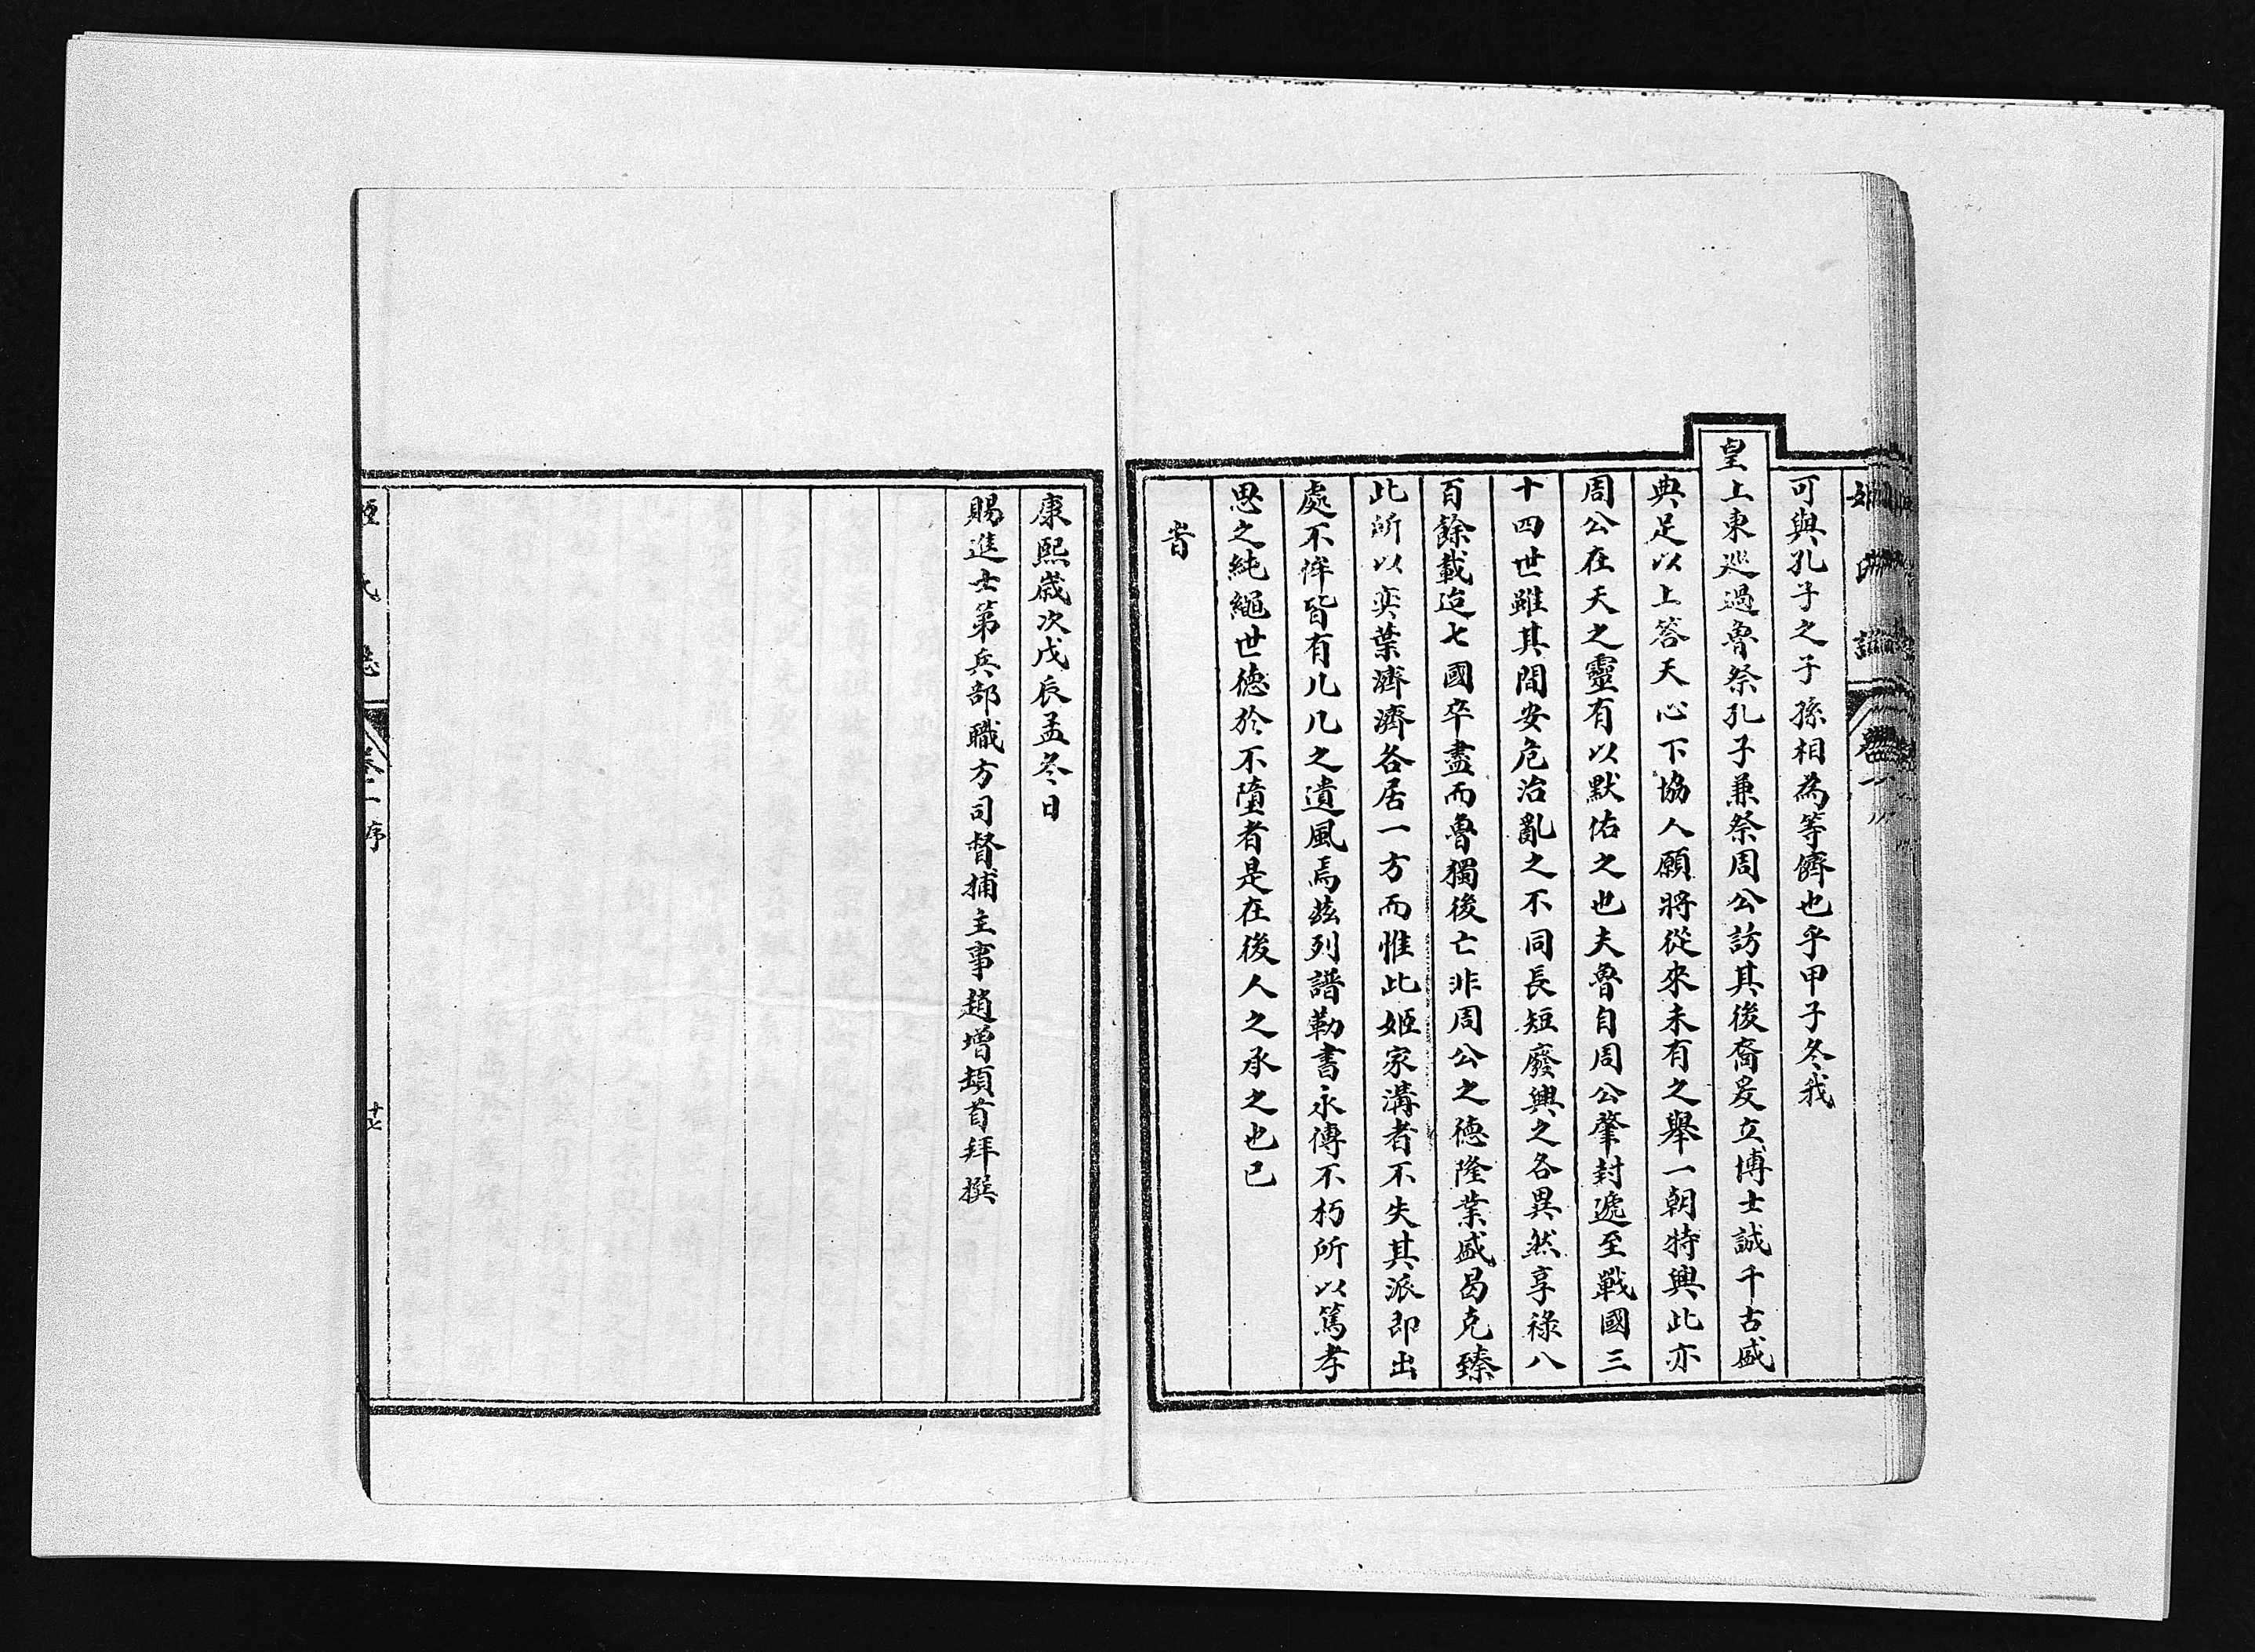 可與孔子之子孫相為等儕也乎甲子冬我
皇上東巡過魯祭孔子兼祭周公訪其後裔爰立博士誠千古盛
典足以上答天心下協人願將從來未有之舉一朝特興此亦
周公在天之靈有以默佑之也夫魯自周公肇封遞至戰國三
十四世雖其間安危治亂之不同長短廢興之各異然享祿八
百餘載迨七國卒盡而魯獨後亡非周公之德隆業盛曷克臻
此所以奕葉濟濟各居一方而惟此姬家溝者不失其派即出
處不侔皆有几几之遺風焉茲列譜勒書永傳不朽所以篤孝
思之純繩世德於不墮者是在後人之承之也已
旹
康熙歲次戊辰孟冬日
賜進士第兵部職方司督捕主事趙增頓首拜撰
姬氏志 卷二序 十七